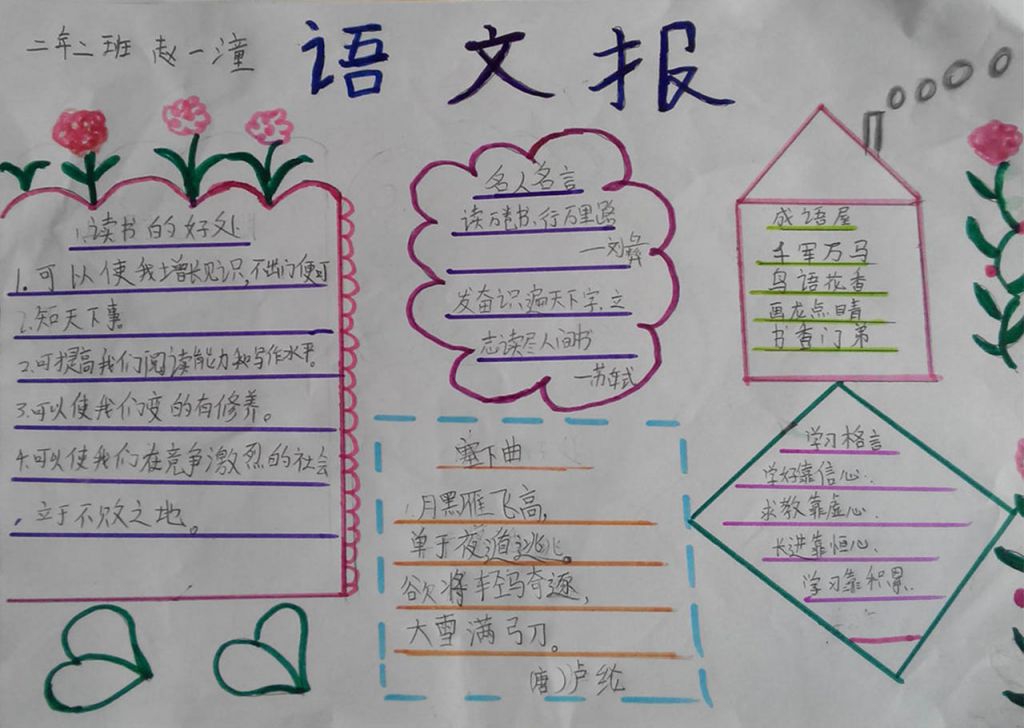 二年二班 赵一潼
语文报
读书的好处
1.可以使我增长见识,不出门便可
知天下事
2.可提高我们阅读能力和写作水平。
3.可以使我们变的有修养。
4.可以使我们在竞争激烈的社会
立于不败之地。
名人名言
读万卷书,行万里路
—刘彝
发奋识遍天下字,立
志读尽人间书
—苏轼
成语屋
千军万马
鸟语花香
画龙点睛
书香门弟
塞下曲
月黑雁飞高,
单于夜遁逃。
欲将轻马奇逐,
大雪满弓刀。
(唐)卢纶
学习格言
学好靠信心.
求教靠虚心.
长进靠恒心.
学习靠积累.